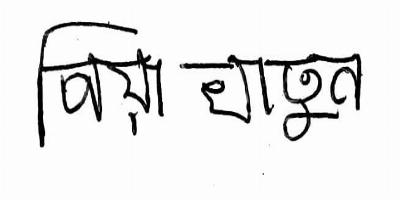 পিয়া খাতুন